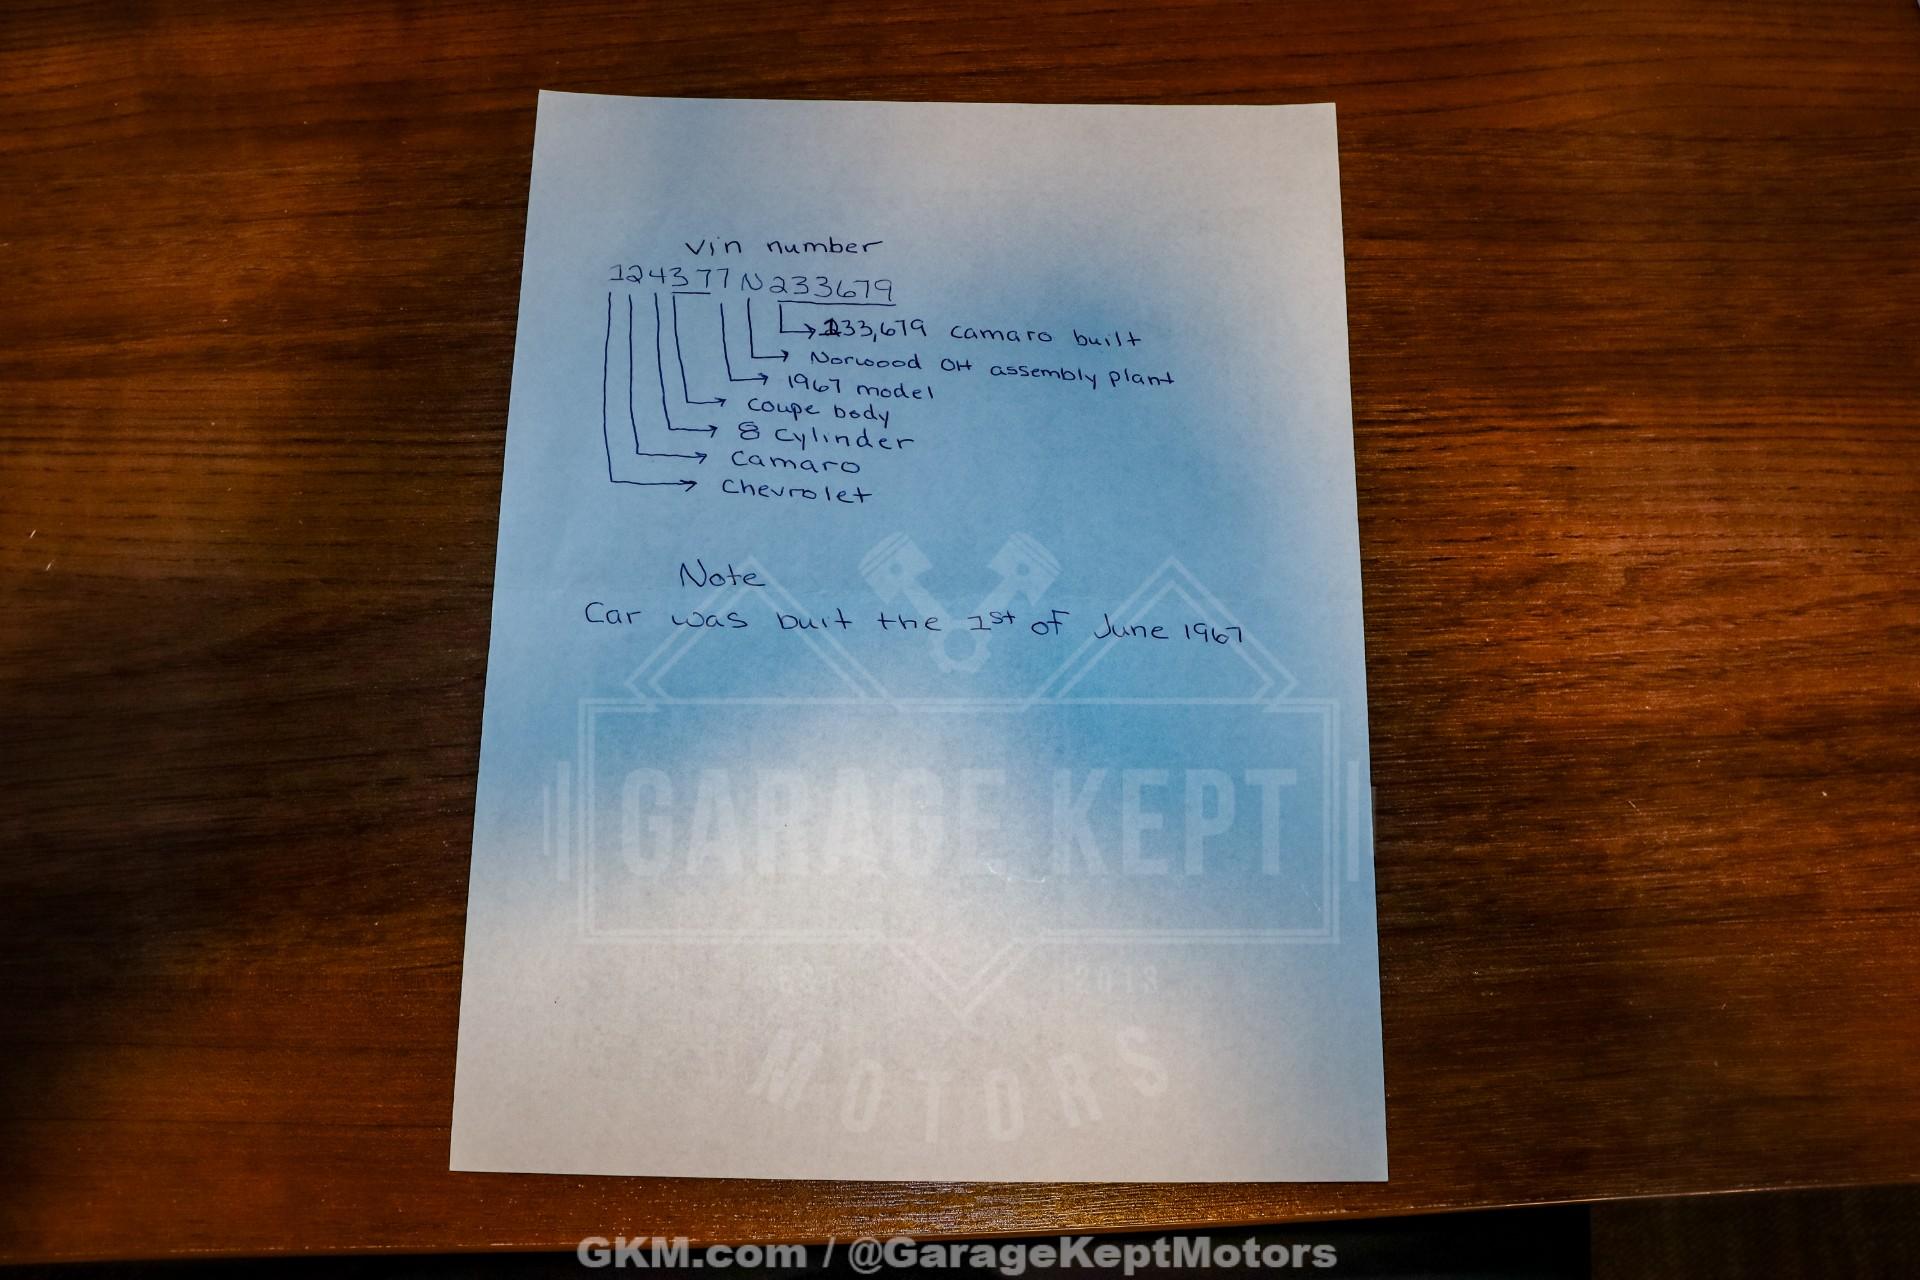 Vin number
124377N233679
233,679 camaro built
Norwood OH assembly plant
1967 model
coupe body
8 cylinder
camaro
chevrolet
Note
Car was built the 1st of June 1967
GARAGE KEPT
EST. 2013
MOTORS
GKM.com / @GarageKeptMotors